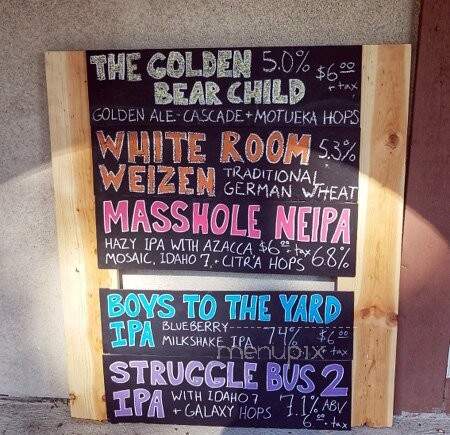 THE GOLDEN 5.0% $6.00
BEAR CHILD + tax
GOLDEN ALE - CASCADE + MOTUEKA HOPS
WHITE ROOM 5.3%
WEIZEN TRADITIONAL
GERMAN WHEAT
MASSHOLE NEIPA
HAZY IPA WITH AZACCA, $6.00 + tax
MOSAIC, IDAHO 7, + CITRA HOPS 6.8%
BOYS TO THE YARD
IPA BLUEBERRY 7.4% $6.00
MILKSHAKE IPA + tax
menupix
STRUGGLE BUS 2
IPA WITH IDAHO 7 7.1% ABV
+ GALAXY HOPS 6.00 + tax